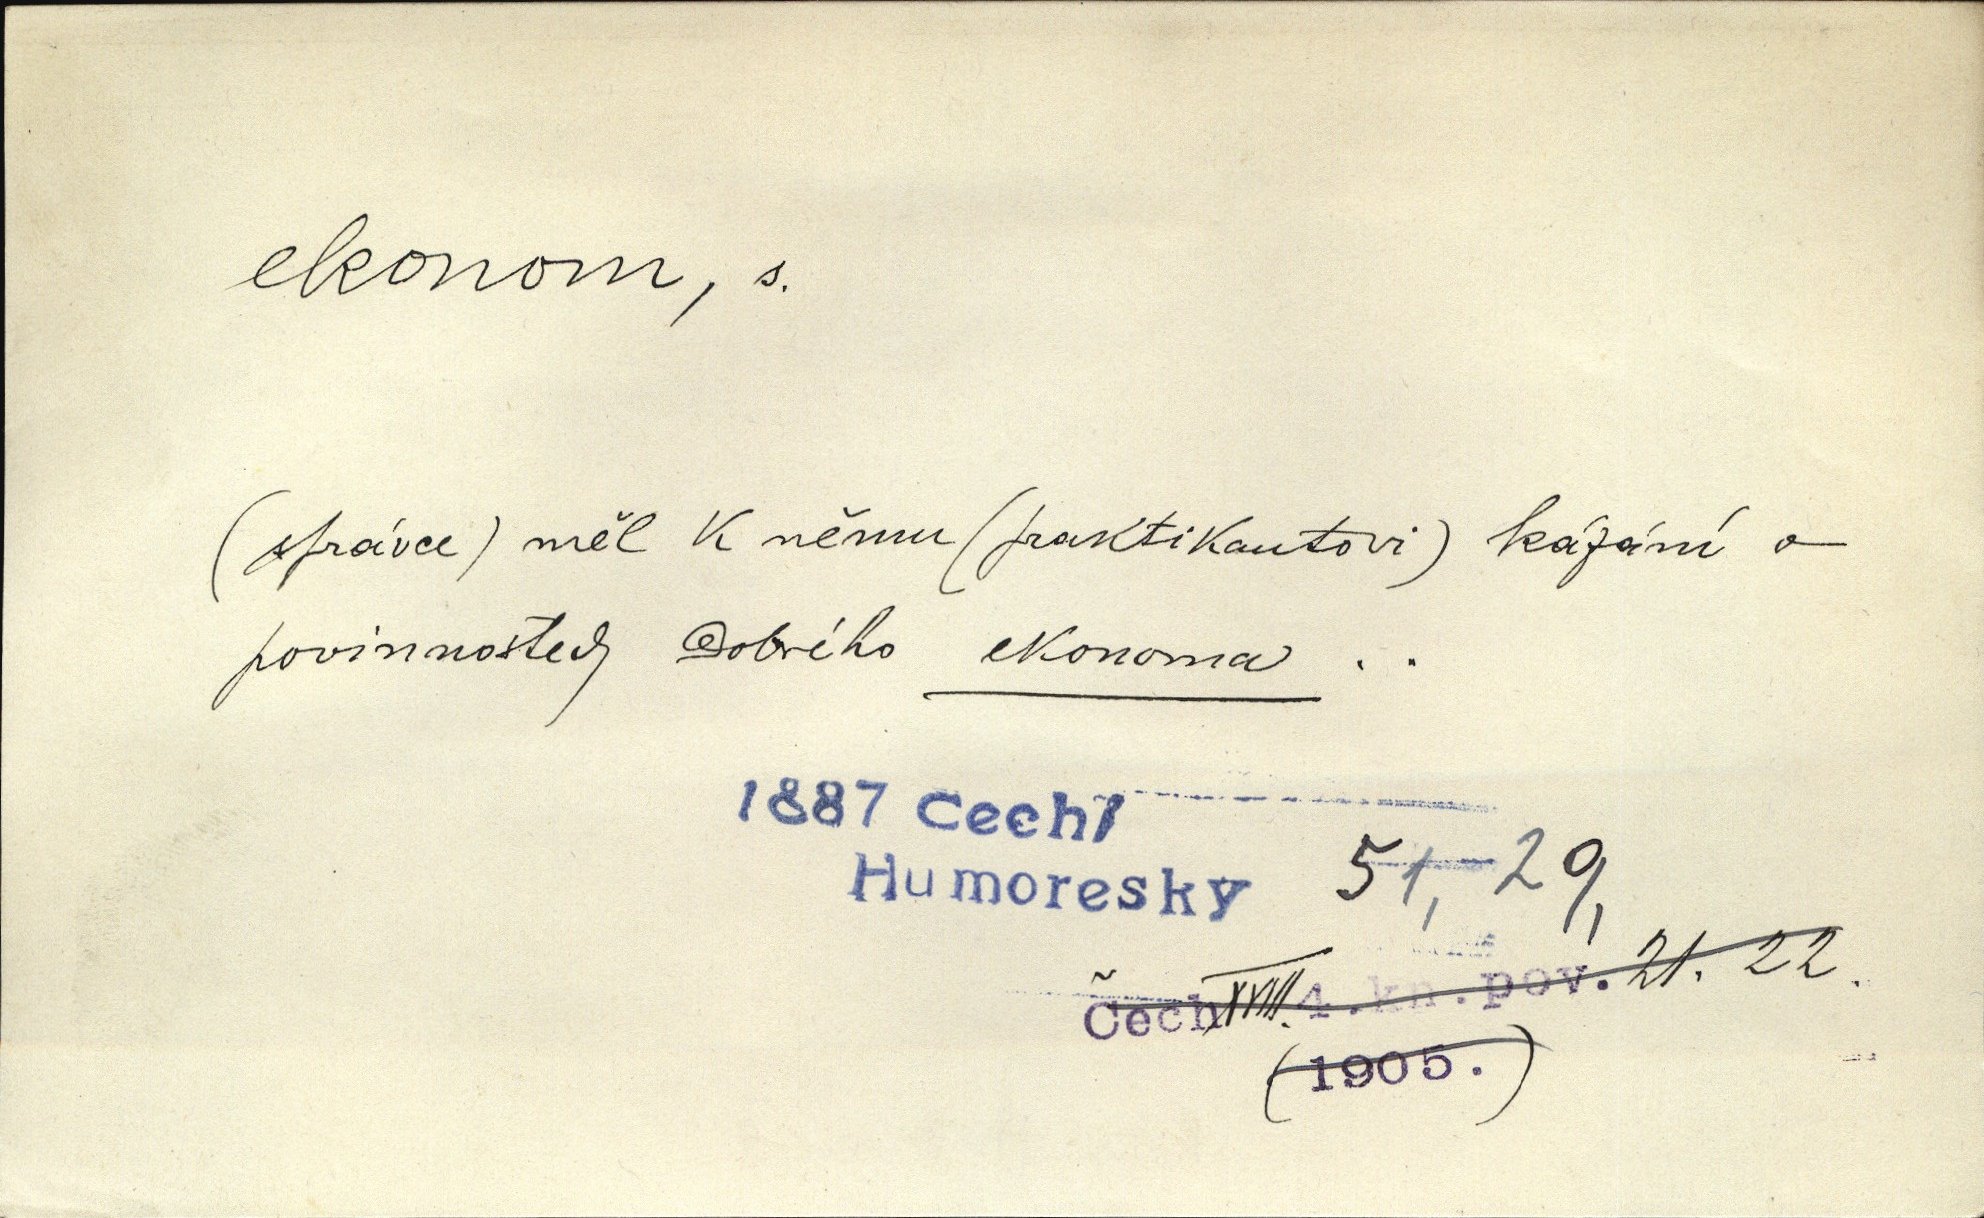 ekonom, s.
(správce) měl k němu (praktikantovi) kázání o
povinnostech dobrého ekonoma . .
1887 Čech1
Humoresky 51, 29,
Čech XVIII. 4.kn.pov. 21. 22.
(1905.)